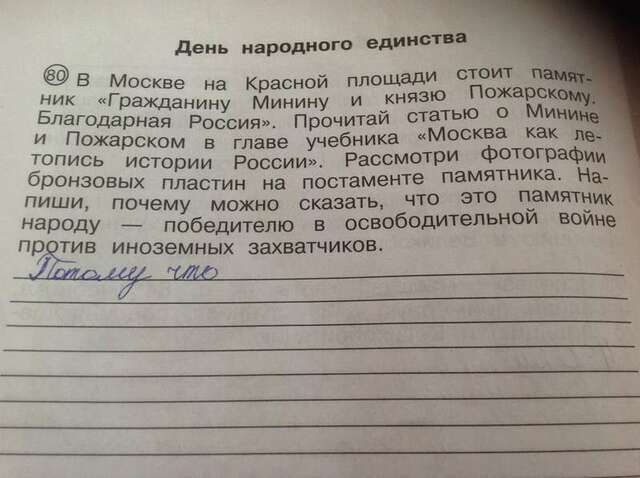 День народного единства
80 В Москве на Красной площади стоит памят-
ник «Гражданину Минину и князю Пожарскому.
Благодарная Россия». Прочитай статью о Минине
и Пожарском в главе учебника «Москва как ле-
топись истории России». Рассмотри фотографии
бронзовых пластин на постаменте памятника. На-
пиши, почему можно сказать, что это памятник
народу — победителю в освободительной войне
против иноземных захватчиков.
Потому что